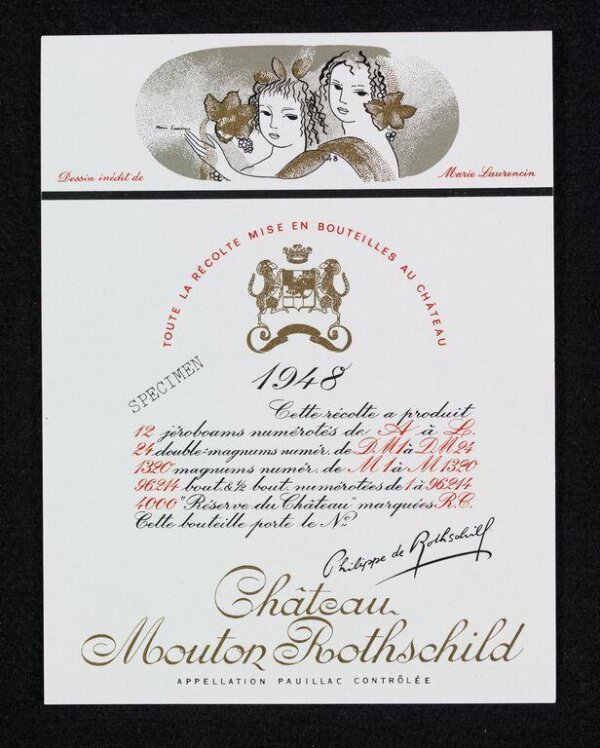 Marie Laurencin
1948
Dessin inédit de
Marie Laurencin
TOUTE LA RÉCOLTE MISE EN BOUTEILLES AU CHÂTEAU
SPECIMEN
1948
Cette récolte a produit
12 jéroboams numérotés de A à L
24 double-magnums numér. de D.M 1 à D.M 24
1320 magnums numér. de M 1 à M 1320
96.214 bout. & ½ bout. numérotées de 1 à 96.214
4000 "Réserve du Château" marquées R.C.
Cette bouteille porte le Nº
Philippe de Rothschild
Château
Mouton Rothschild
APPELLATION PAUILLAC CONTRÔLÉE